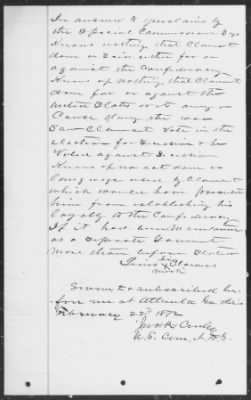 In answer to questions by
the Special Commissioner says
Knows nothing that Claimant
done or said either for or
against the Confederacy
Knows of nothing that Claimant
done for or against the
United States or its army or
Cause during the war
Saw Claimant Vote in the
election for Secession & he
Voted against Secession
Knows of no act done or
language used by Claimant
which would have prevented
him from establishing his
loyalty to the Confederacy
If it had been maintained
as a separate Government
more than before stated
his
mark
Sworn to & subscribed be-
fore me at Atlanta Ga this
February 22d 1872
U.S. Com. N.D.G.